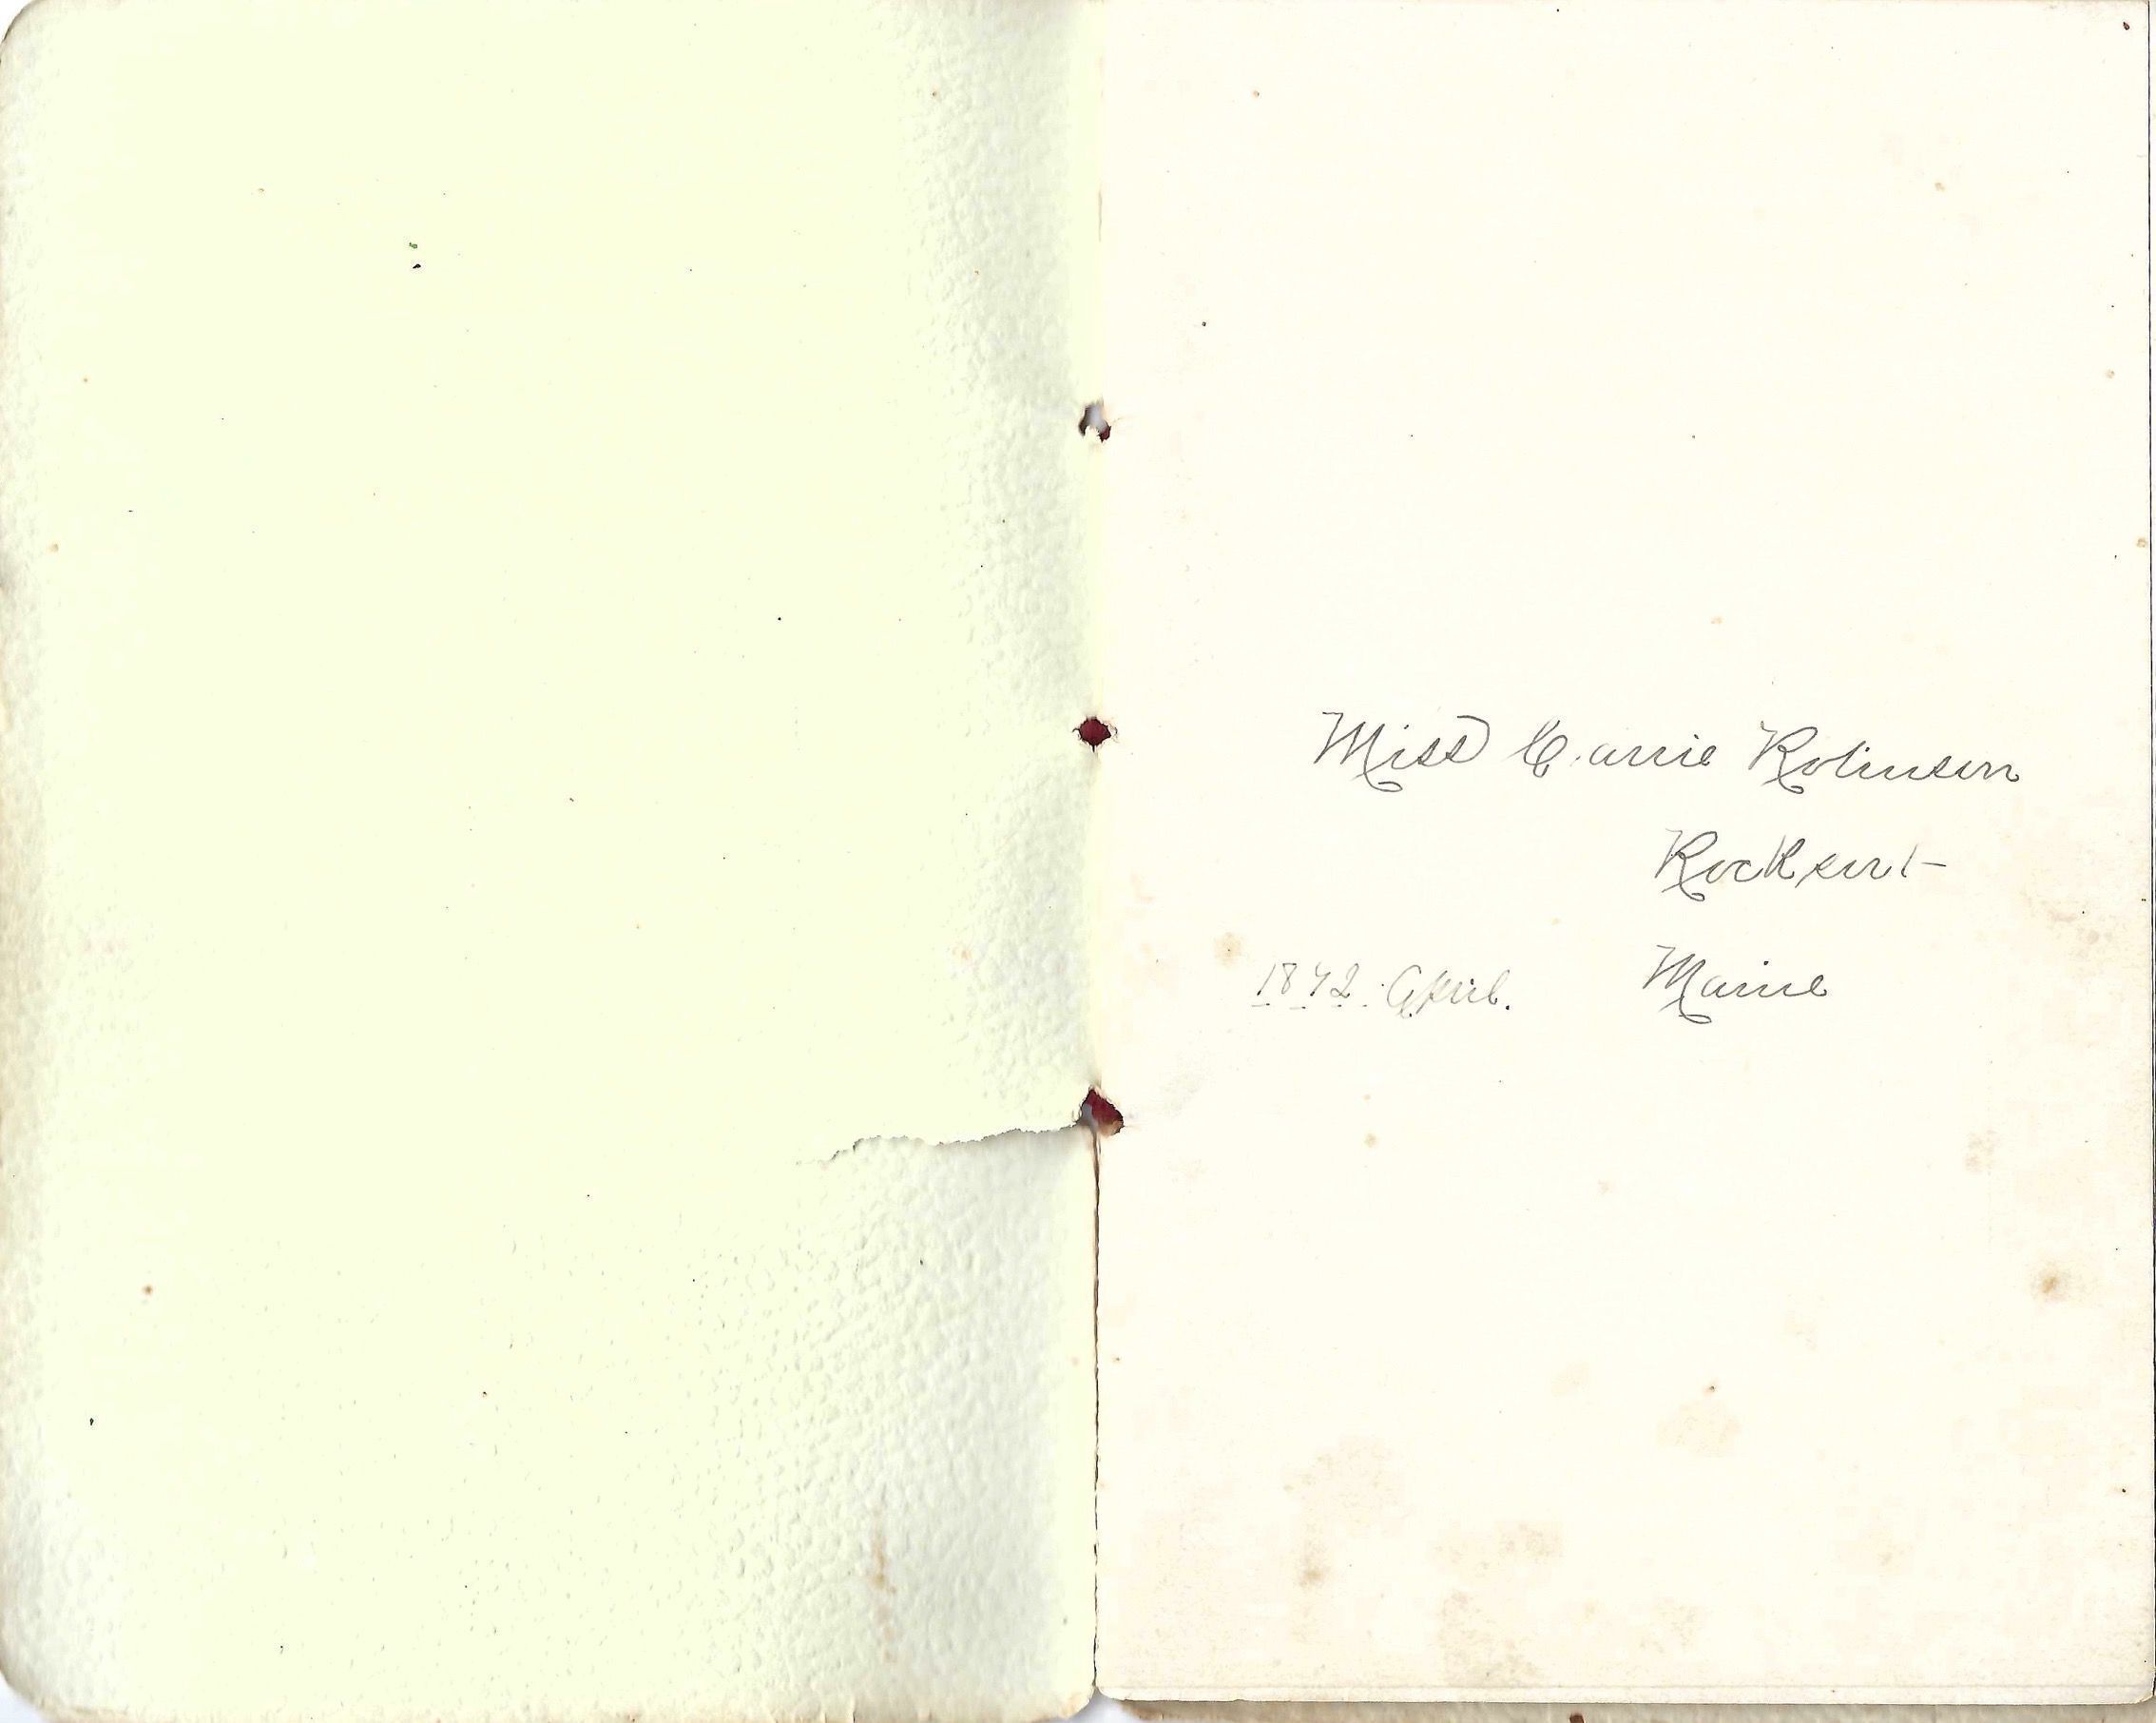 Miss Carrie Robinson
Rockport
1892. April. Maine